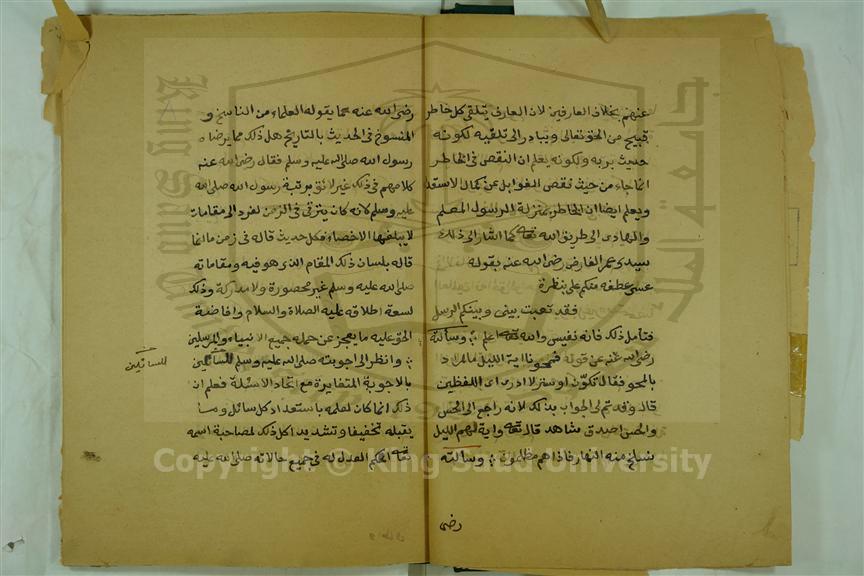 عنهم بخلاف العارفين لان العارف يتلقى كل خاطر
قبيح من الحق تعالى ويبادر الى تلقيه لكونه
حديث بربه ولكونه يعلم ان النقص فى الخاطر
انما جاء من حيث نقص القوابل عن كمال الاستعد
ويعلم ايضا ان الخاطر بمنزلة الرسول المعلم
والهادى الى طريق الله تعه كما اشار الى ذلك
سيدى عمر الفارض رضى الله عنه بقوله
عسى عطفه منكم على بنظرة
فقد تعبت بينى وبينكم الرسل
فتأمل ذلك فانه نفيس والله تعه اعلم وسألته
رضى الله عنه عن قوله فمحونا اية الليل ما المراد
بالمحو فقال تكون او ستر لا ادرى اى اللفظين
قال وقد تم لى الجواب بذلك لانه راجع الى الحس
والحس اصدق شاهد قال تعه واية لهم الليل
نسلخ منه النهار فاذا هم مظلمون وسألته
رضى
رضى الله عنه عما يقوله العلماء من الناسخ و
المنسوخ فى الحديث بالتاريخ هل ذلك مما يرضاه
رسول الله صلى الله عليه وسلم فقال رضى الله عنه
كلامهم فى ذلك غير لائق برتبة رسول الله صلى الله
عليه وسلم لانه كان يترقى فى الزمن الفرد الى مقامات
لا يبلغها الاحصاء فكل حديث قاله فى زمن ما انما
قاله بلسان ذلك المقام الذى هو فيه ومقاماته
صلى الله عليه وسلم غير محصورة ولا مدركة وذلك
لسعة اطلاقه عليه الصلاة والسلام وافاضة
الحق عليه ما يعجز عن حمله جميع الانبياء والمرسلين
وانظر الى اجوبته صلى الله عليه وسلم للسائلين
بالاجوبة المتغايرة مع اتحاد الاسئلة فعلم ان
ذلك انما كان لعلمه باستعداد كل سائل وما
يقبله تخفيفا وتشديدا كل ذلك لمصاحبة اسمه
تعه الحكم العدل له فى جميع حالاته صلى الله عليه
للسائلين
جامعة الملك
King Saud
Copyright © King Saud University